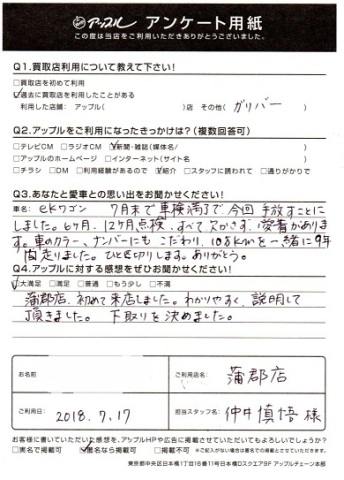 アップル アンケート用紙
この度は当店をご利用いただきありがとうございました。
Q1.買取店利用について教えて下さい!
□買取店を初めて利用
☑過去に買取店を利用したことがある
利用した店舗: アップル( )店 その他( ガリバー )
Q2.アップルをご利用になったきっかけは?(複数回答可)
□テレビCM □ラジオCM ☑新聞・雑誌(媒体名/ )
□アップルのホームページ □インターネット(サイト名 )
□チラシ □DM □利用経験があるので ☑紹介 □スタッフに誘われて □通りがかりで
Q3.あなたと愛車との思い出をお聞かせください!
車名: eKワゴン 7月末で車検満了で、今回手放すことに
しました。6ヶ月、12ヶ月点検、すべて欠かさず、愛着がありま
す。車のカラー、ナンバーにも こだわり、10万kmを一緒に9年
間走りました。ひと区切りします。ありがとう。
Q4.アップルに対する感想をぜひお聞かせください!
☑大満足 □満足 □普通 □もう少し □不満
蒲郡店、初めて来店しました。わかりやすく、説明して
頂きました。 下取りを決めました。
お名前
ご利用店名: 蒲郡店
ご利用日: 2018.7.17
担当スタッフ名: 仲井慎悟 様
お客様に書いていただいた感想を、アップルHPや広告に掲載させていただいてもよろしいでしょうか?
□実名で掲載可 ☑匿名なら掲載可 □掲載不可 ※ご記入がない場合は匿名での掲載とさせていただきます。
東京都中央区日本橋1丁目16番11号日本橋Dスクエア9F アップルチェーン本部